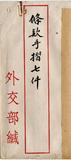 條款手摺七件
外交部緘